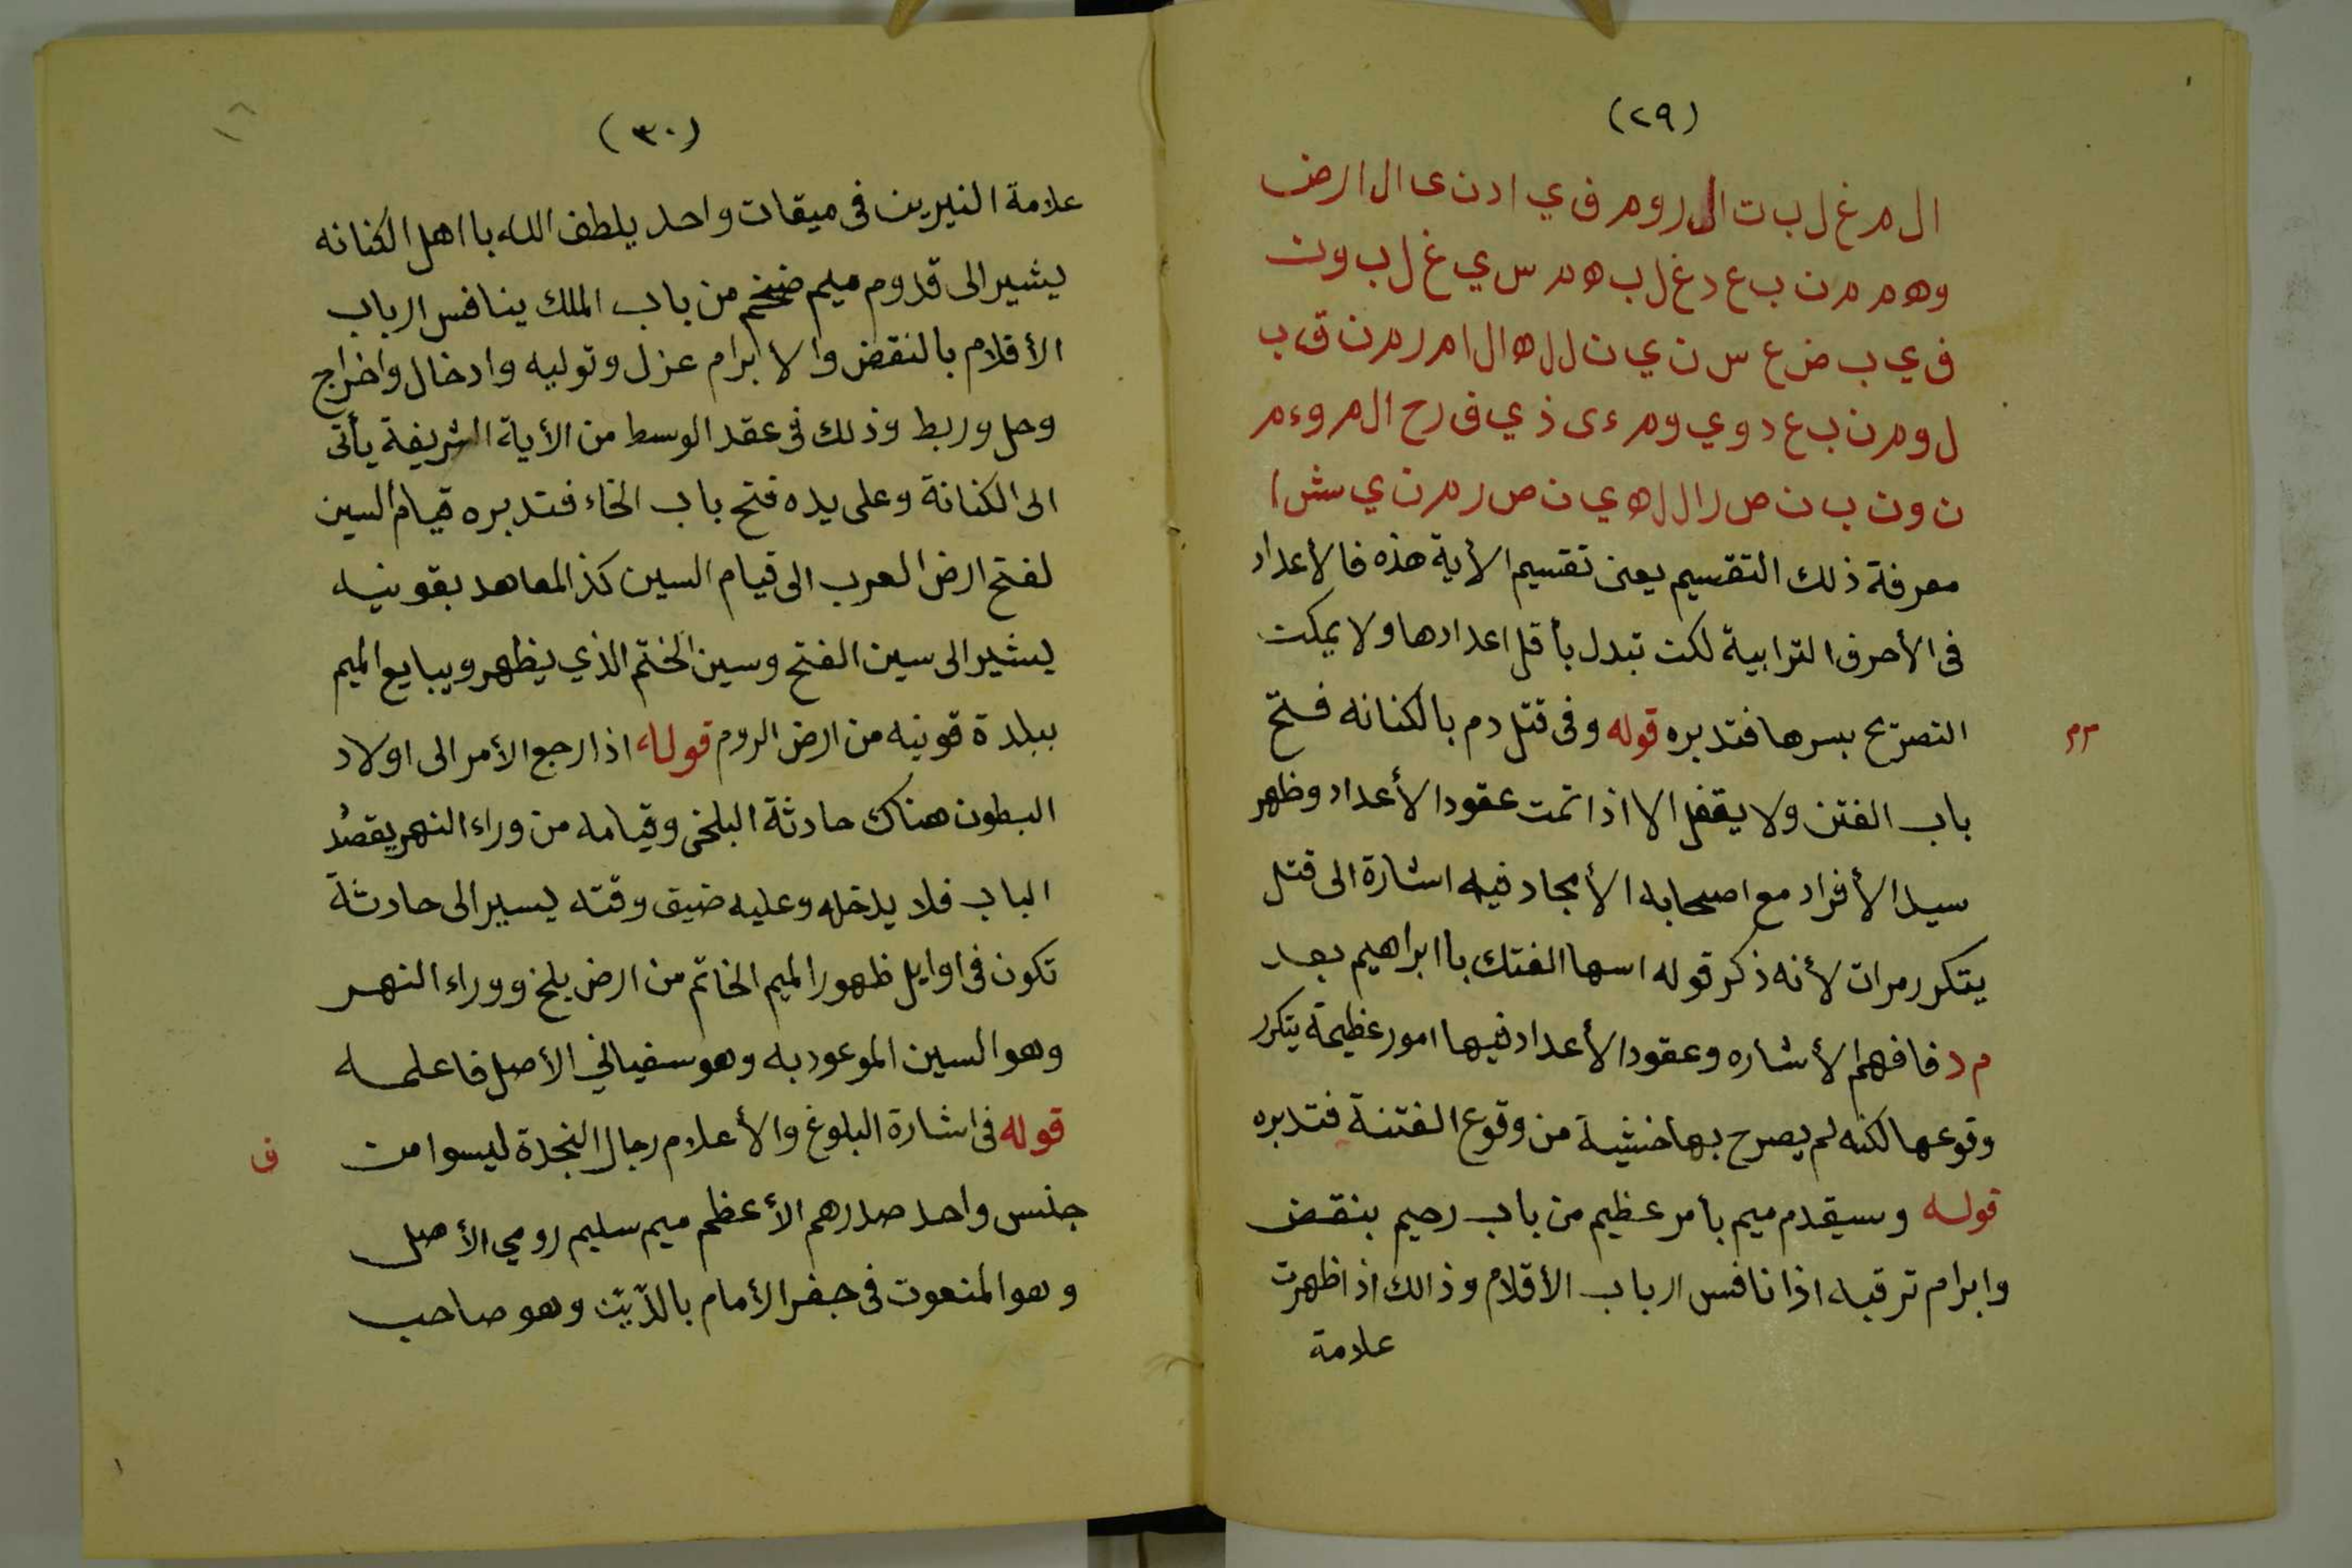 (٢٩)
ال م غ ل ب ت ال ر و م ف ي ا د ن ى ال ا ر ض
و ه م م ن ب ع د غ ل ب ه م س ي غ ل ب و ن
ف ي ب ض ع س ن ي ن ل ل ه ال ا م ر م ن ق ب
ل و م ن ب ع د و ي و م ء ى ذ ي ف ر ح ال م و ء م
ن و ن ب ن ص ر ال ل ه ي ن ص ر م ن ي ش ا
معرفة ذلك التقسيم يعنى تقسيم الأية هذه فالأعداد
فى الأحرف الترابية لكن تبدل بأقل اعدادها ولا يمكن
التصريح بسرها فتدبره قوله وفى قتل دم بالكنانه فتح
مم
باب الفتن ولا يقفل الا اذا تمت عقود الأعداد وظهر
سيد الأفراد مع اصحابه الأمجاد فيه اشارة الى قتل
يتكرر مرات لأنه ذكر قوله اسها الفتك باابراهيم بعد
م د فافهم الأشاره وعقود الأعداد فيها امور عظيمة يتكرر
وقوعها لكنه لم يصرح بها خشية من وقوع الفتنة فتدبره
قوله وسيقدم ميم بأمر عظيم من باب رحيم بنقض
وابرام ترقبه اذا نافس ارباب الأقلام وذالك اذا ظهرت
علامة
(٣٠)
علامة النيرين فى ميقات واحد يلطف الله بااهل الكنانه
يشير الى قدوم ميم ضخم من باب الملك ينافس ارباب
الأقلام بالنقض والابرام عزل وتوليه وادخال واخراج
وحل وربط وذلك فى عقد الوسط من الأية الشريفة يأتى
الى الكنانة وعلى يده فتح باب الخاء فتدبره قيام السين
لفتح ارض العرب الى قيام السين كذ المعاهد بقونيه
يشير الى سين الفتح وسين الختم الذي يظهر ويبايع الميم
ببلدة قونيه من ارض الروم قوله اذا رجع الأمر الى اولاد
البطون هناك حادثة البلخى وقيامه من وراء النهر يقصد
الباب فلا يدخله وعليه ضيق وقته يسير الى حادثة
تكون فى اوايل ظهور الميم الخاتم من ارض بلخ ووراء النهر
وهو السين الموعود به وهو سفياني الأصل فاعلمه
قوله فى اشارة البلوغ والأعلام رجال النجدة ليسوا من
ف
جنس واحد صدرهم الأعظم ميم سليم رومي الأصل
وهو المنعوت فى جفر الأمام بالدّيّن وهو صاحب